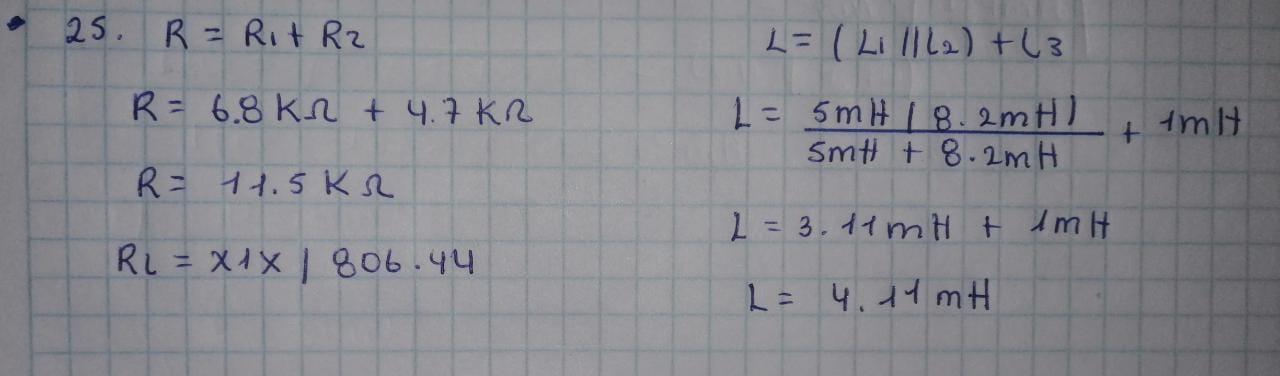 25. R = R1 + R2
R = 6.8 KΩ + 4.7 KΩ
R = 11.5 KΩ
RL = x1x | 806.44
L = (L1 || L2) + L3
L = 5mH ( 8.2mH ) / 5mH + 8.2mH + 1mH
L = 3.11mH + 1mH
L = 4.11mH